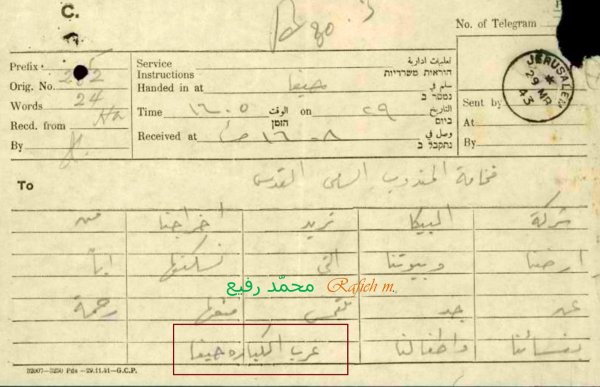 C.
B 90
Prefix
Orig. No. 252
Words 24
Recd. from Ha
By
Service Instructions
تعليمات ادارية
הוראות משרדיות
Handed in at
حيفا
سلم في
נמסר ב
Time
١٦٠٥
الوقت
הזמן
on
٢٩
التاريخ
ביום
Received at
١٦٠٨
وصل في
נתקבל ב
No. of Telegram
Sent by
At
By
JERUSALEM
29 MR
43
To
فخامة المندوب السامي القدس
شركة البيكا تريد اخراجنا من
ارضنا وبيوتنا التي نسكنها اباً
عن جد نلتمس منعها رحمة
بنسائنا واطفالنا عرب الكباره حيفا
محمّد رفيع Rafieh m.
32007—3250 Pds —29.11.41—G.C.P.